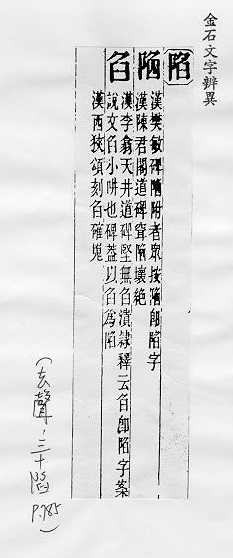 金石文字辨異
陷
陷 漢樊敏碑陷附者眾按陷卽陷字
漢陳君閣道碑聳陷壞絕
臽 漢李翕天井道碑堅無臽潰隸釋云臽卽陷字案
說文臽小阱也碑蓋以臽爲陷
漢西狹頌刻臽確嵬
(去聲.三十陷 P.785)